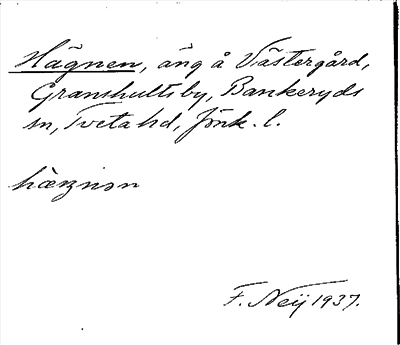 Hägnen, äng å Västergård,
Granshults by, Bankeryds
sn, Tveta hd, Jönk. l.
hæŋnən
F. Neij 1937.